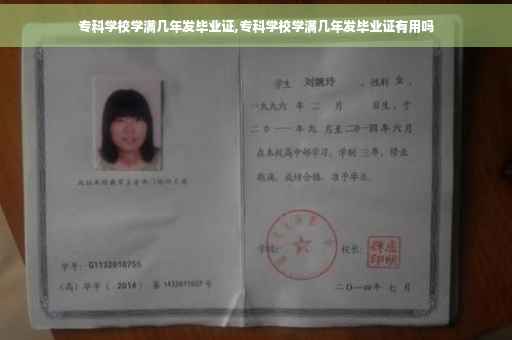 专科学校学满几年发毕业证,专科学校学满几年发毕业证有用吗
学生 刘婉玲 ,性别 女 ,
一九九六 年 二 月 日生,于
二〇一一 年 九 月至二〇一四年 六 月
在本校高中部学习,学制 三年,修业
期满,成绩合格,准予毕业。
学校: 校长:
学号: G1132010755
(高)毕字( 2014 )第 1432011027 号
二〇一四年 七 月